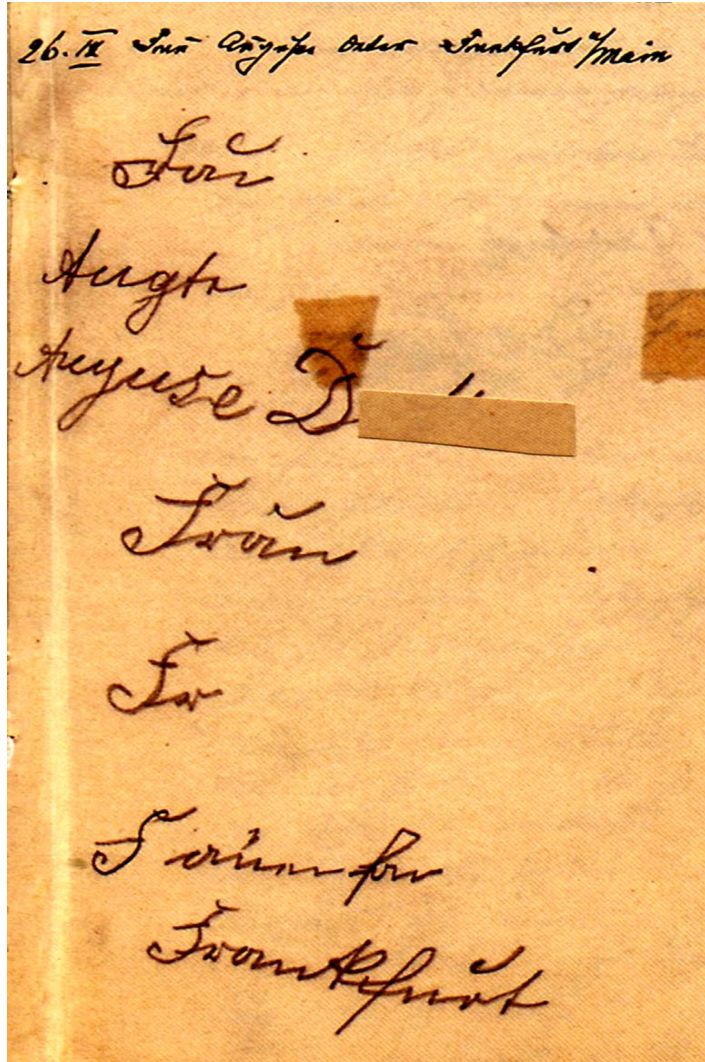 26. IX Frau Auguste Deter Frankfurt a/Main
Fraü
Augtr
Auguse D
Fraün
Fr
Frankfurt